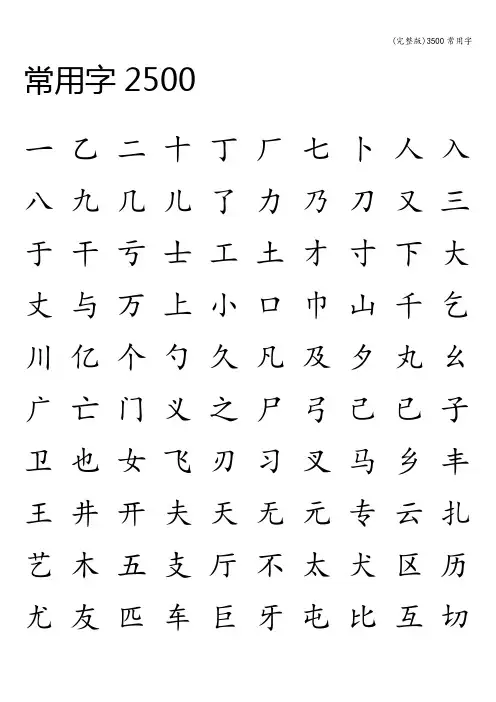 (完整版)3500常用字
常用字2500
一 乙 二 十 丁 厂 七 卜 人 入
八 九 几 儿 了 力 乃 刀 又 三
于 干 亏 士 工 土 才 寸 下 大
丈 与 万 上 小 口 巾 山 千 乞
川 亿 个 勺 久 凡 及 夕 丸 么
广 亡 门 义 之 尸 弓 己 已 子
卫 也 女 飞 刃 习 叉 马 乡 丰
王 井 开 夫 天 无 元 专 云 扎
艺 木 五 支 厅 不 太 犬 区 历
尤 友 匹 车 巨 牙 屯 比 互 切